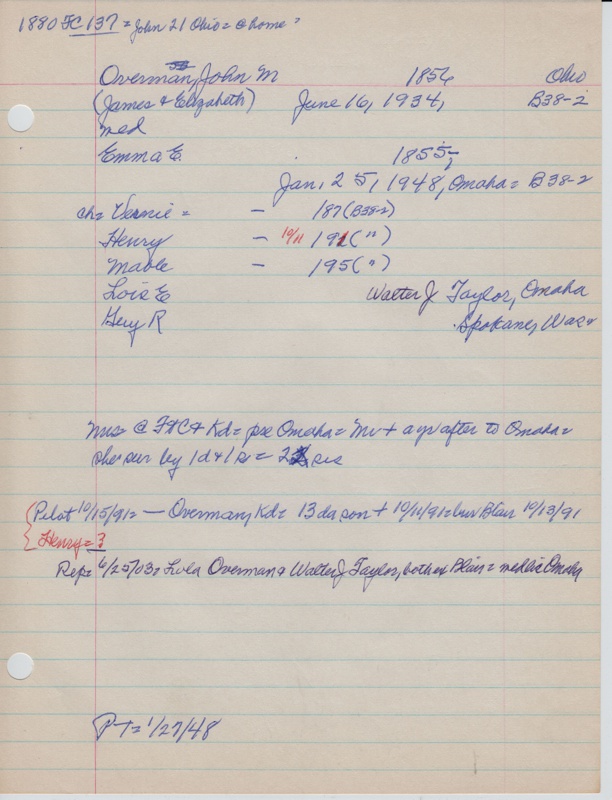 1880 FC 137 = John 21 Ohio = @ home =
Overman, John M 1856 Ohio
(James & Elizabeth) June 16, 1934, B38-2
med
Emma E. 1855,
Jan. 25, 1948, Omaha = B38-2
ch = Vernie = - 187(B38-2)
Henry - 10/11 191(")
Mable - 195(")
Lois E Walter J Taylor, Omaha
Gery R Spokane, Was
@ FtC & Kd = Omaha = Mr + a yr after to Omaha =
she sur by 1d & 1 = 22
Pilot 10/15/91 = — Overman, Kd = 13 da son + 10/11/91 = bur Blair 10/13/91
Henry = ?
Rep = 6/25/03 = Lola Overman & Walter J Taylor, both of Blair = med Omaha
P-T = 1/27/48